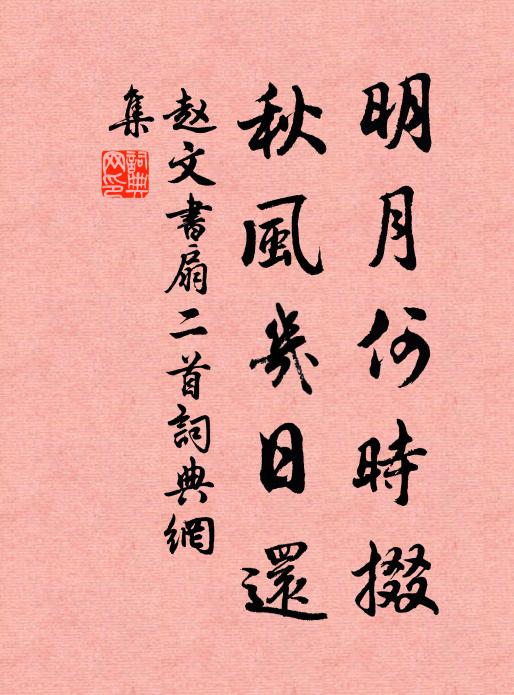 明月何時掇
秋風幾日還
赵文書扇二首詞典網
集
詞典網印